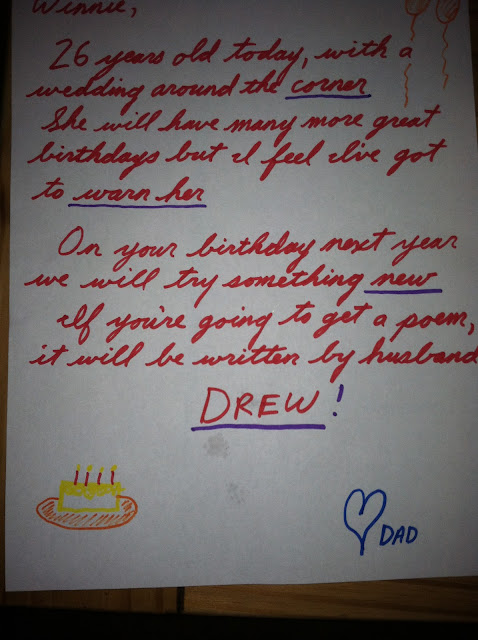 Winnie,
26 years old today, with a
wedding around the corner
She will have many more great
birthdays but I feel I've got
to warn her
On your birthday next year
we will try something new
If you're going to get a poem,
it will be written by husband
DREW!
DAD